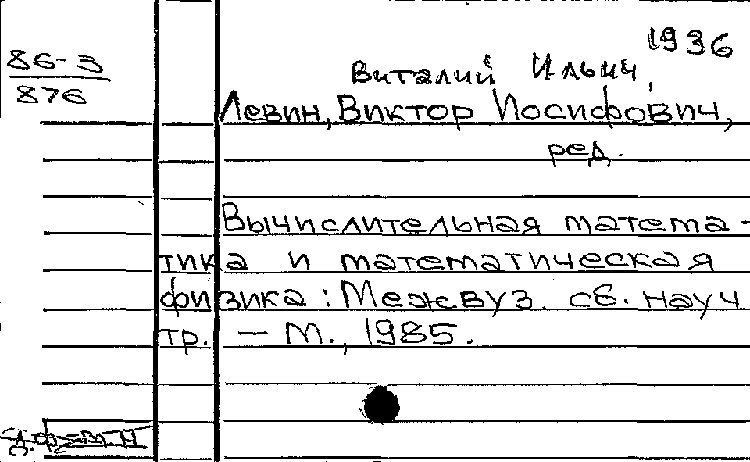 1936
86-3
876
Виталий Ильич,
Левин, Виктор Иосифович,
ред.
Вычислительная матема-
тика и математическая
физика: Межвуз. сб. науч
тр. — М., 1985.